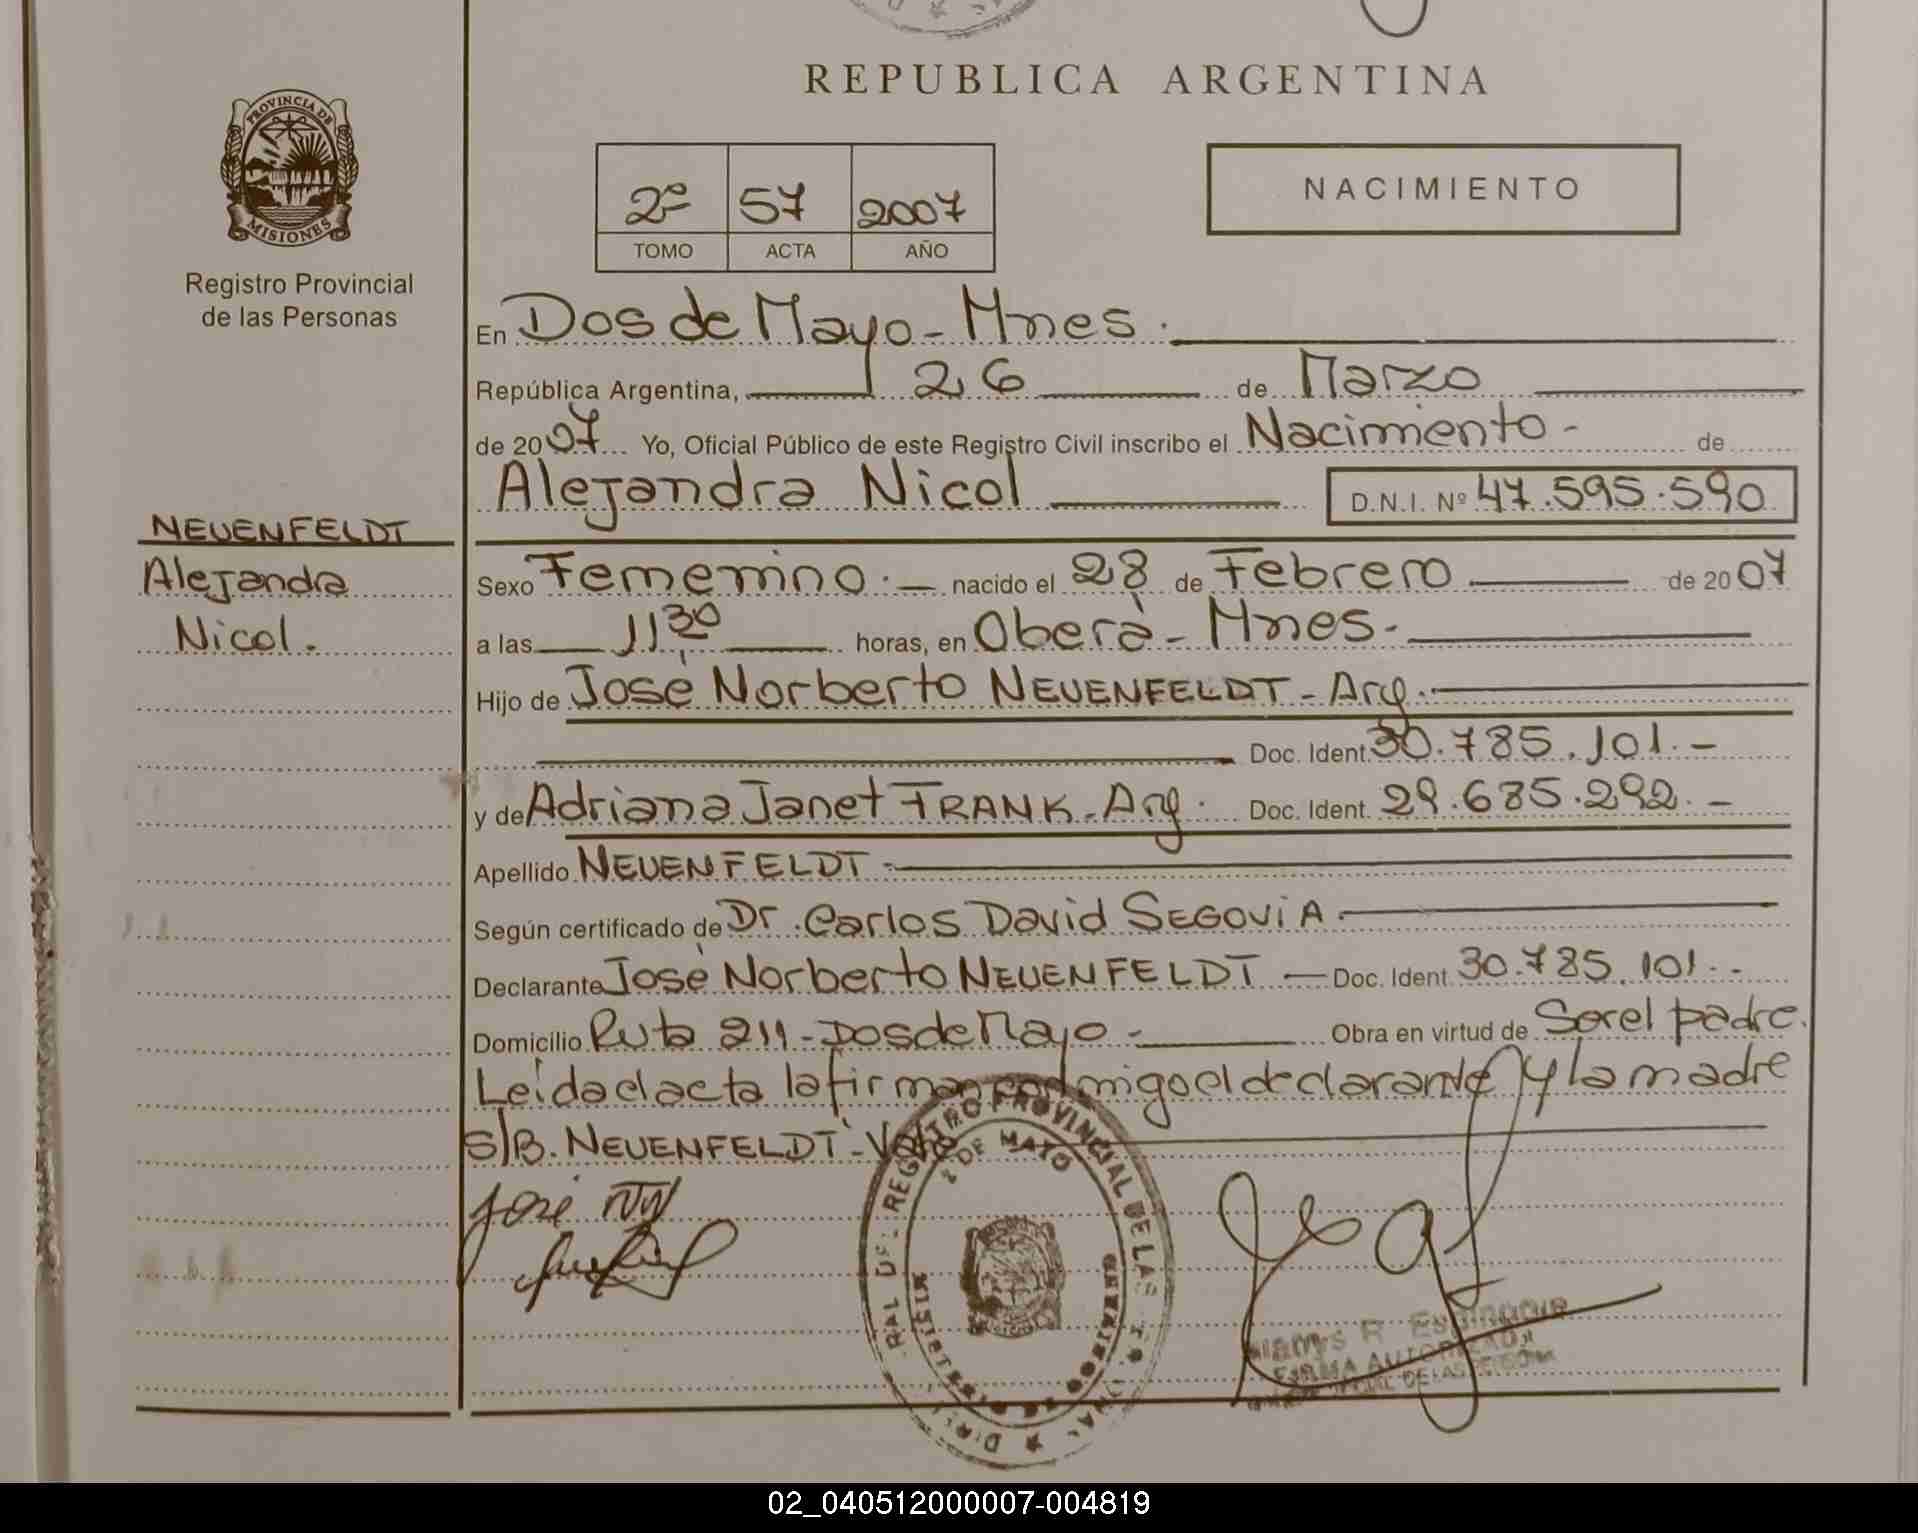 REPUBLICA ARGENTINA
PROVINCIA DE
MISIONES
Registro Provincial
de las Personas
2º 57 2007
TOMO ACTA AÑO
NACIMIENTO
En Dos de Mayo - Mnes.
República Argentina, 26 de Marzo
de 2007 Yo, Oficial Público de este Registro Civil inscribo el Nacimiento - de
Alejandra Nicol D.N.I. Nº 47.595.590
NEUENFELDT
Alejandra
Nicol.
Sexo Femenino. - nacido el 28 de Febrero de 2007
a las 11,30 horas, en Oberá - Mnes. -
Hijo de José Norberto NEUENFELDT - Arg.
Doc. Ident. 30.785.101. -
y de Adriana Janet FRANK - Arg. Doc. Ident. 29.685.292. -
Apellido NEUENFELDT -
Según certificado de Dr. Carlos David SEGOVIA -
Declarante José Norberto NEUENFELDT - Doc. Ident. 30.785.101. -
Domicilio Ruta 211 - Dos de Mayo - Obra en virtud de Ser el padre.
Leída el acta la firman conmigo el declarante y la madre
S/B. NEUENFELDT - Vale
José
REGISTRO PROVINCIAL DE LAS
2 DE MAYO
MISIONES
R. Espindola
FIRMA AUTORIZADA
DE LAS PERSONAS
02_040512000007-004819